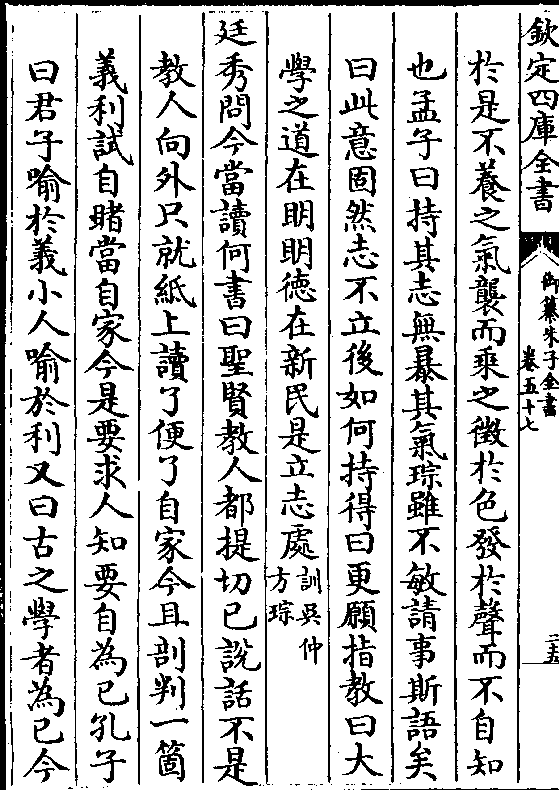 欽定四庫全書
御纂朱子全書
卷五十七
二十五
於是不養之氣襲而乘之徵於色發於聲而不自知
也孟子曰持其志無暴其氣琮雖不敏請事斯語矣
曰此意固然志不立後如何持得曰更願指教曰大
學之道在明明德在新民是立志處訓吳仲方琮
廷秀問今當讀何書曰聖賢教人都提切己說話不是
教人向外只就紙上讀了便了自家今且剖判一箇
義利試自睹當自家今是要求人知要自為己孔子
曰君子喻於義小人喻於利又曰古之學者為己今